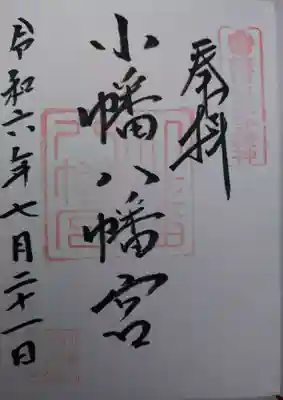 奉拝
小幡八幡宮
令和六年七月二十一日